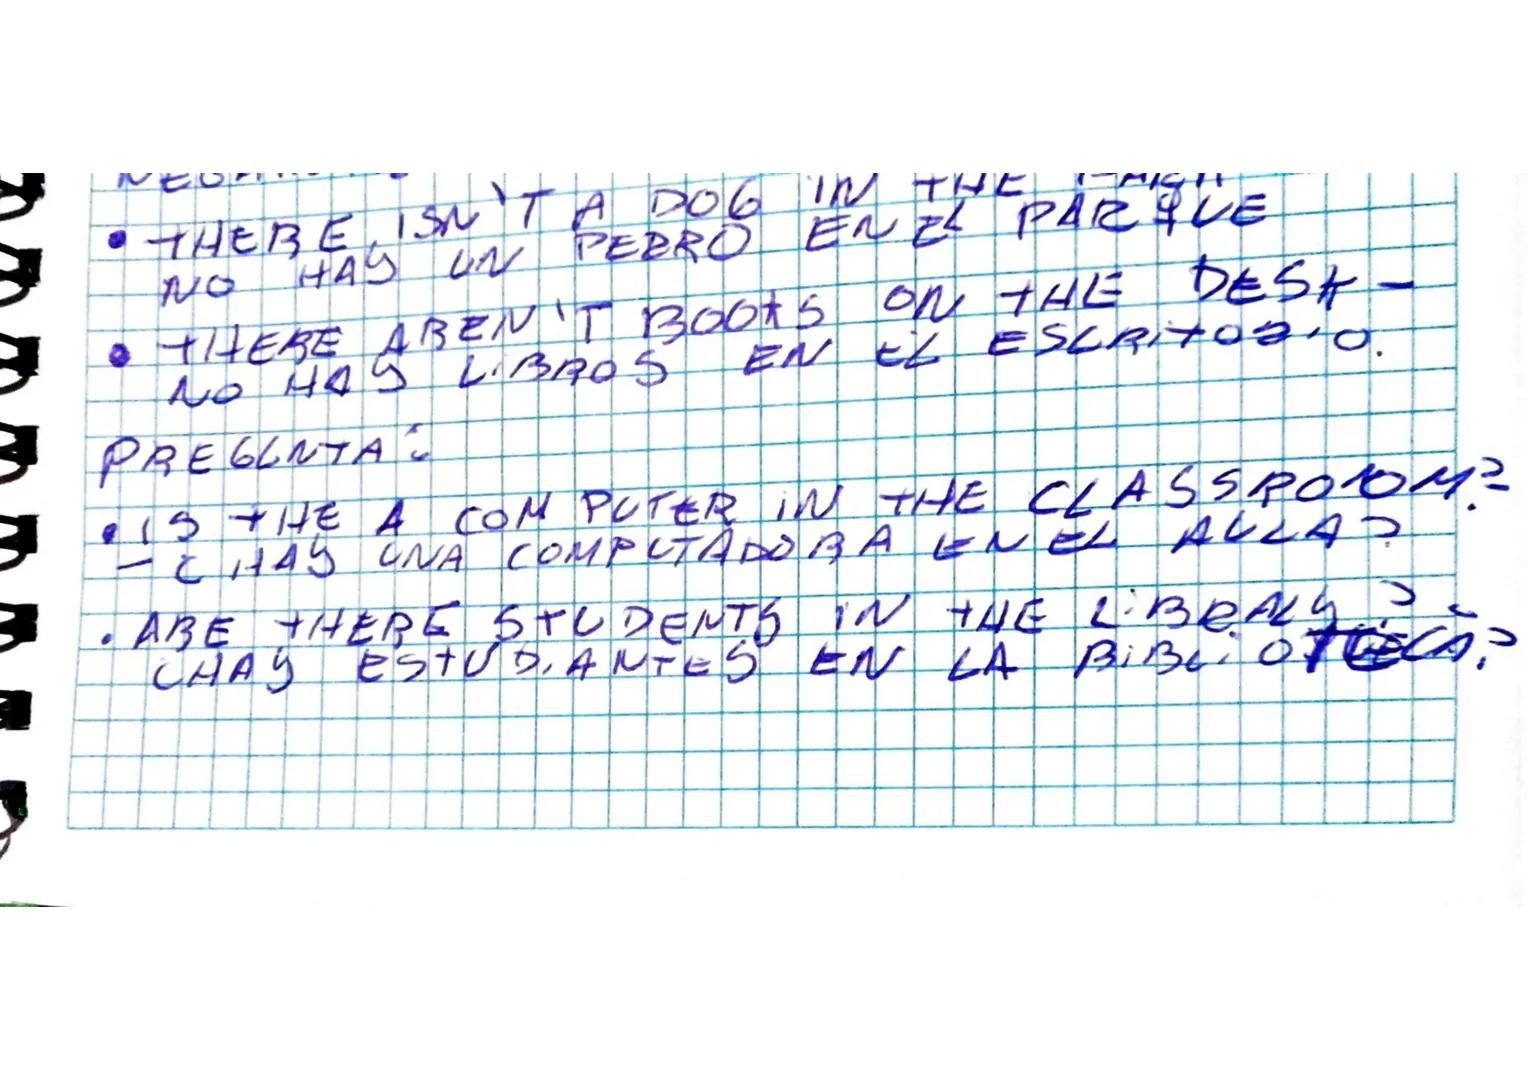 • THERE ISN'T A DOG IN THE
NO HAY UN PERRO EN EL PARQUE
• THERE AREN'T BOOKS ON THE DESK -
NO HAY LIBROS EN EL ESCRITORIO.
PREGUNTA:
• IS THE A COMPUTER IN THE CLASSROOM?
- ¿HAY UNA COMPUTADORA EN EL AULA?
• ARE THERE STUDENTS IN THE LIBRALY? -
¿HAY ESTUDIANTES EN LA BIBLIOTECA?